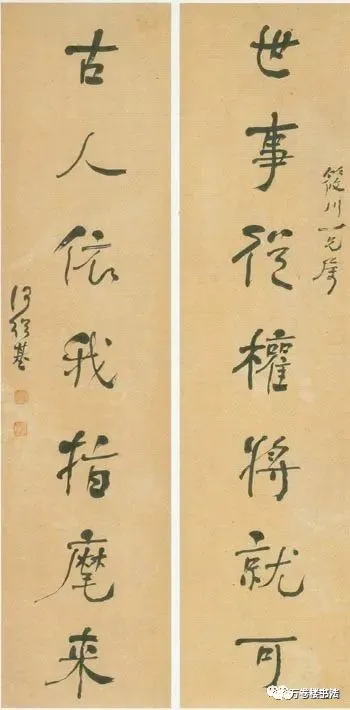 世事從權將就可
筱川一兄屬
古人依我指麾來
何紹基
万卷楼书法